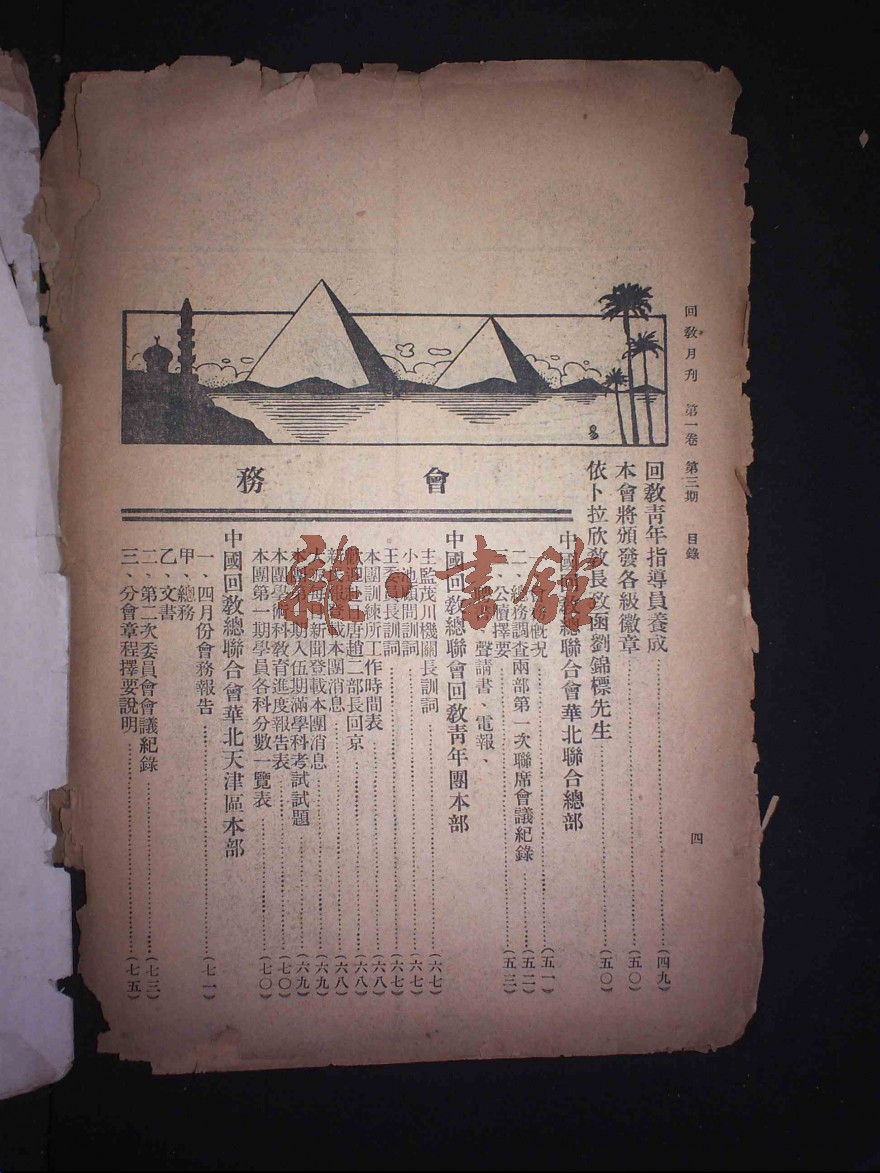 回教月刊 第一卷 第三期 目錄 四
回教靑年指導員養成…(四九)
本會將頒發各級徽章…(五〇)
依卜拉欣教長致函劉錦標先生…(五〇)
會務
中國回教總聯合會華北聯合總部
務槪况…(五一)
二、總務調查兩部第一次聯席會議紀錄…(五二)
三、公牘擇要…(五三)
聲請書、電報、
中國回教總聯會回教靑年團本部
主監茂川機關長訓詞…(六七)
小池顧問訓詞…(六七)
王委員長訓詞…(六七)
本團訓練所工作時間表…(六八)
唐趙二部長回京…(六八)
新民報登載本團消息…(六八)
大阪每日新聞登載本團消息…(六九)
本團第一期入伍期滿學科考試試題…(六九)
本團學術科教育進度報告表…(七〇)
本團第一期學員各科分數一覽表…(七〇)
中國回教總聯合會華北天津區本部
一、四月份會務報告…(七一)
甲、總務
乙、文書
二、第二次委員會會議紀錄…(七三)
三、分會章程擇要說明…(七五)
雜·書館